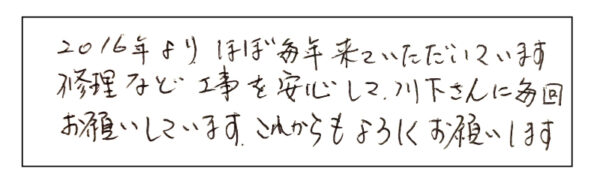 2016年より ほぼ毎年来ていただいています
修理など工事を安心して、川下さんに毎回
お願いしています。これからもよろしくお願いします